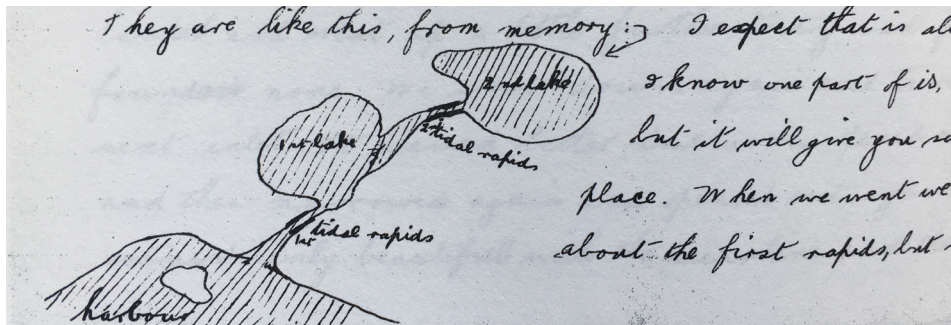 They are like this, from memory:- I expect that is
I know one part of is,
but it will give you
place. When we went
about the first rapids, but
2nd lake
2nd tidal rapids
1st lake
1st tidal rapids
harbour